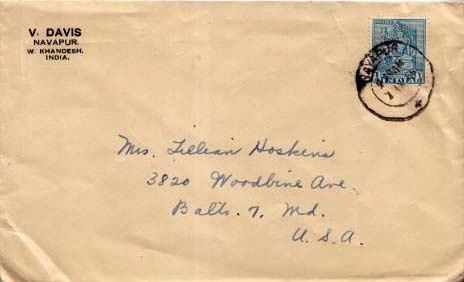 V. DAVIS
NAVAPUR.
W. KHANDESH.
INDIA.
NAVAPUR
INDIA
Mrs. Lillian Hoskins
3820 Woodbine Ave.
Balto. 7, Md.
U.S.A.